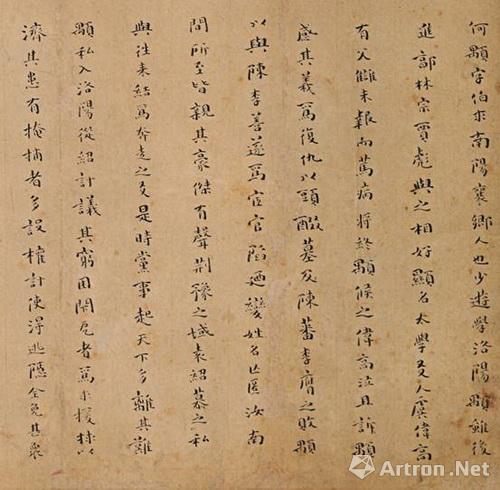 何顒字伯求南陽襄鄉人也少遊學洛陽顒雖後
進郭林宗賈彪與之相好顯名太學友人虞偉高
有父讎未報而篤病將終顒候之偉高泣且訴顒
感其義為復仇以頭醊墓及陳蕃李膺之敗顒
以與陳李善遂為宦官陷迺變姓名亡匿汝南
間所至皆親其豪傑有聲荊豫之域袁紹慕之私
與往來結為奔走之友是時黨事起天下多離其難
顒私入洛陽從紹計議其窮困閉厄者為求援救以
濟其患有掩捕者多設權計使得逃隱全免甚衆
Artron.Net